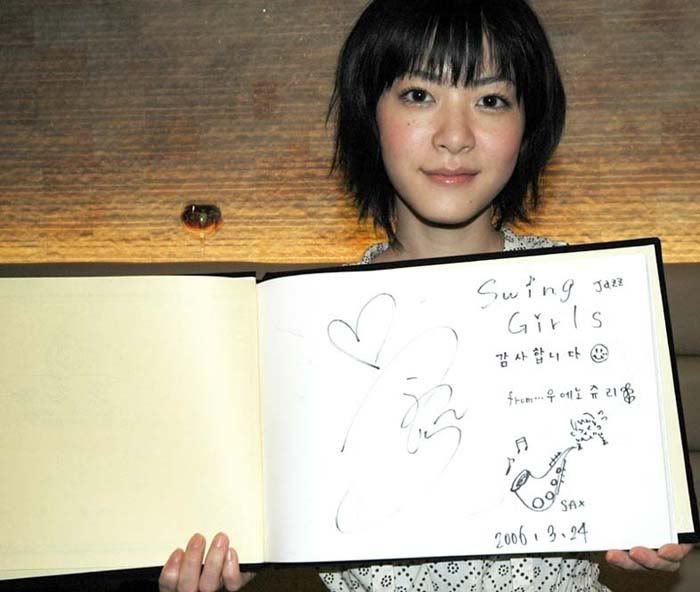 Swing Jazz
Girls
감사합니다
from...우에노 쥬리
SAX
2006. 3. 24